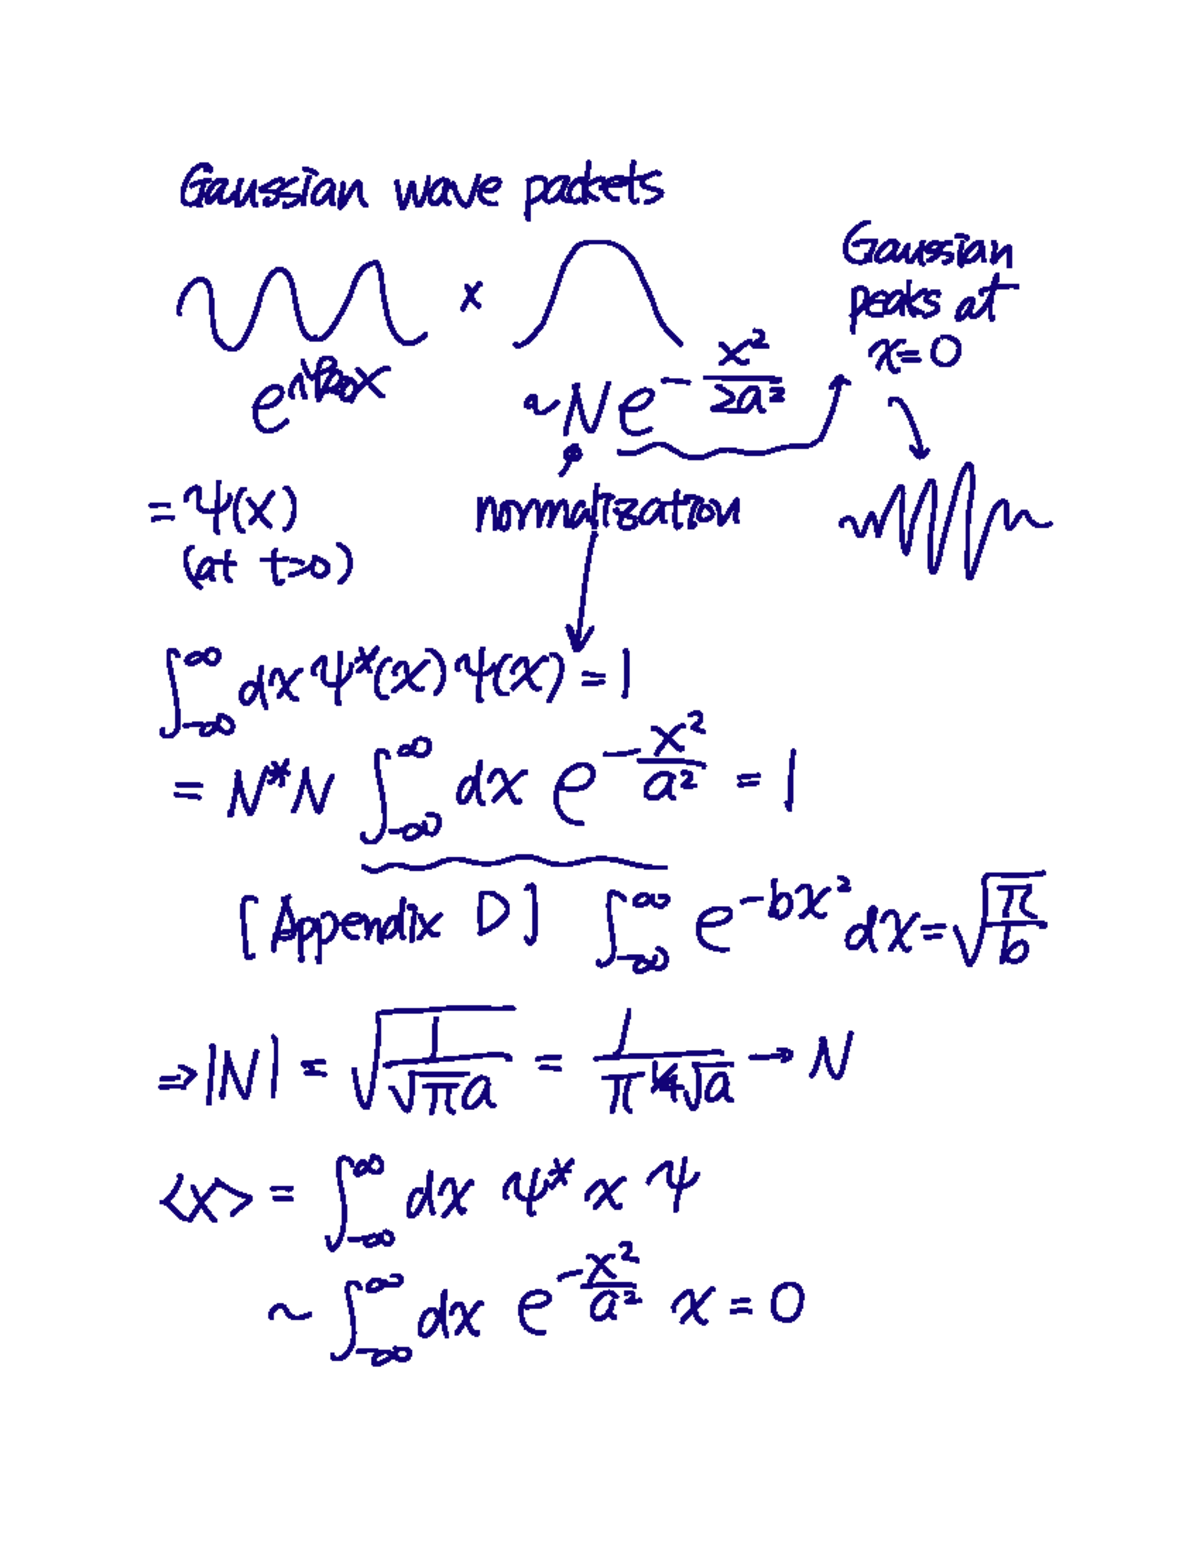 Gaussian wave packets
Gaussian
peaks at
x = 0
×
~ N e^{-x²/2a²}
= ψ(x)
(at t=0)
normalization
∫_{-∞}^{∞} dx ψ*(x) ψ(x) = 1
= N*N ∫_{-∞}^{∞} dx e^{-x²/a²} = 1
[Appendix D] ∫_{-∞}^{∞} e^{-bx²} dx = √(π/b)
⇒ |N| = √(1/(√π a)) = 1/(π^{1/4} √a) → N
<x> = ∫_{-∞}^{∞} dx ψ* x ψ
~ ∫_{-∞}^{∞} dx e^{-x²/a²} x = 0